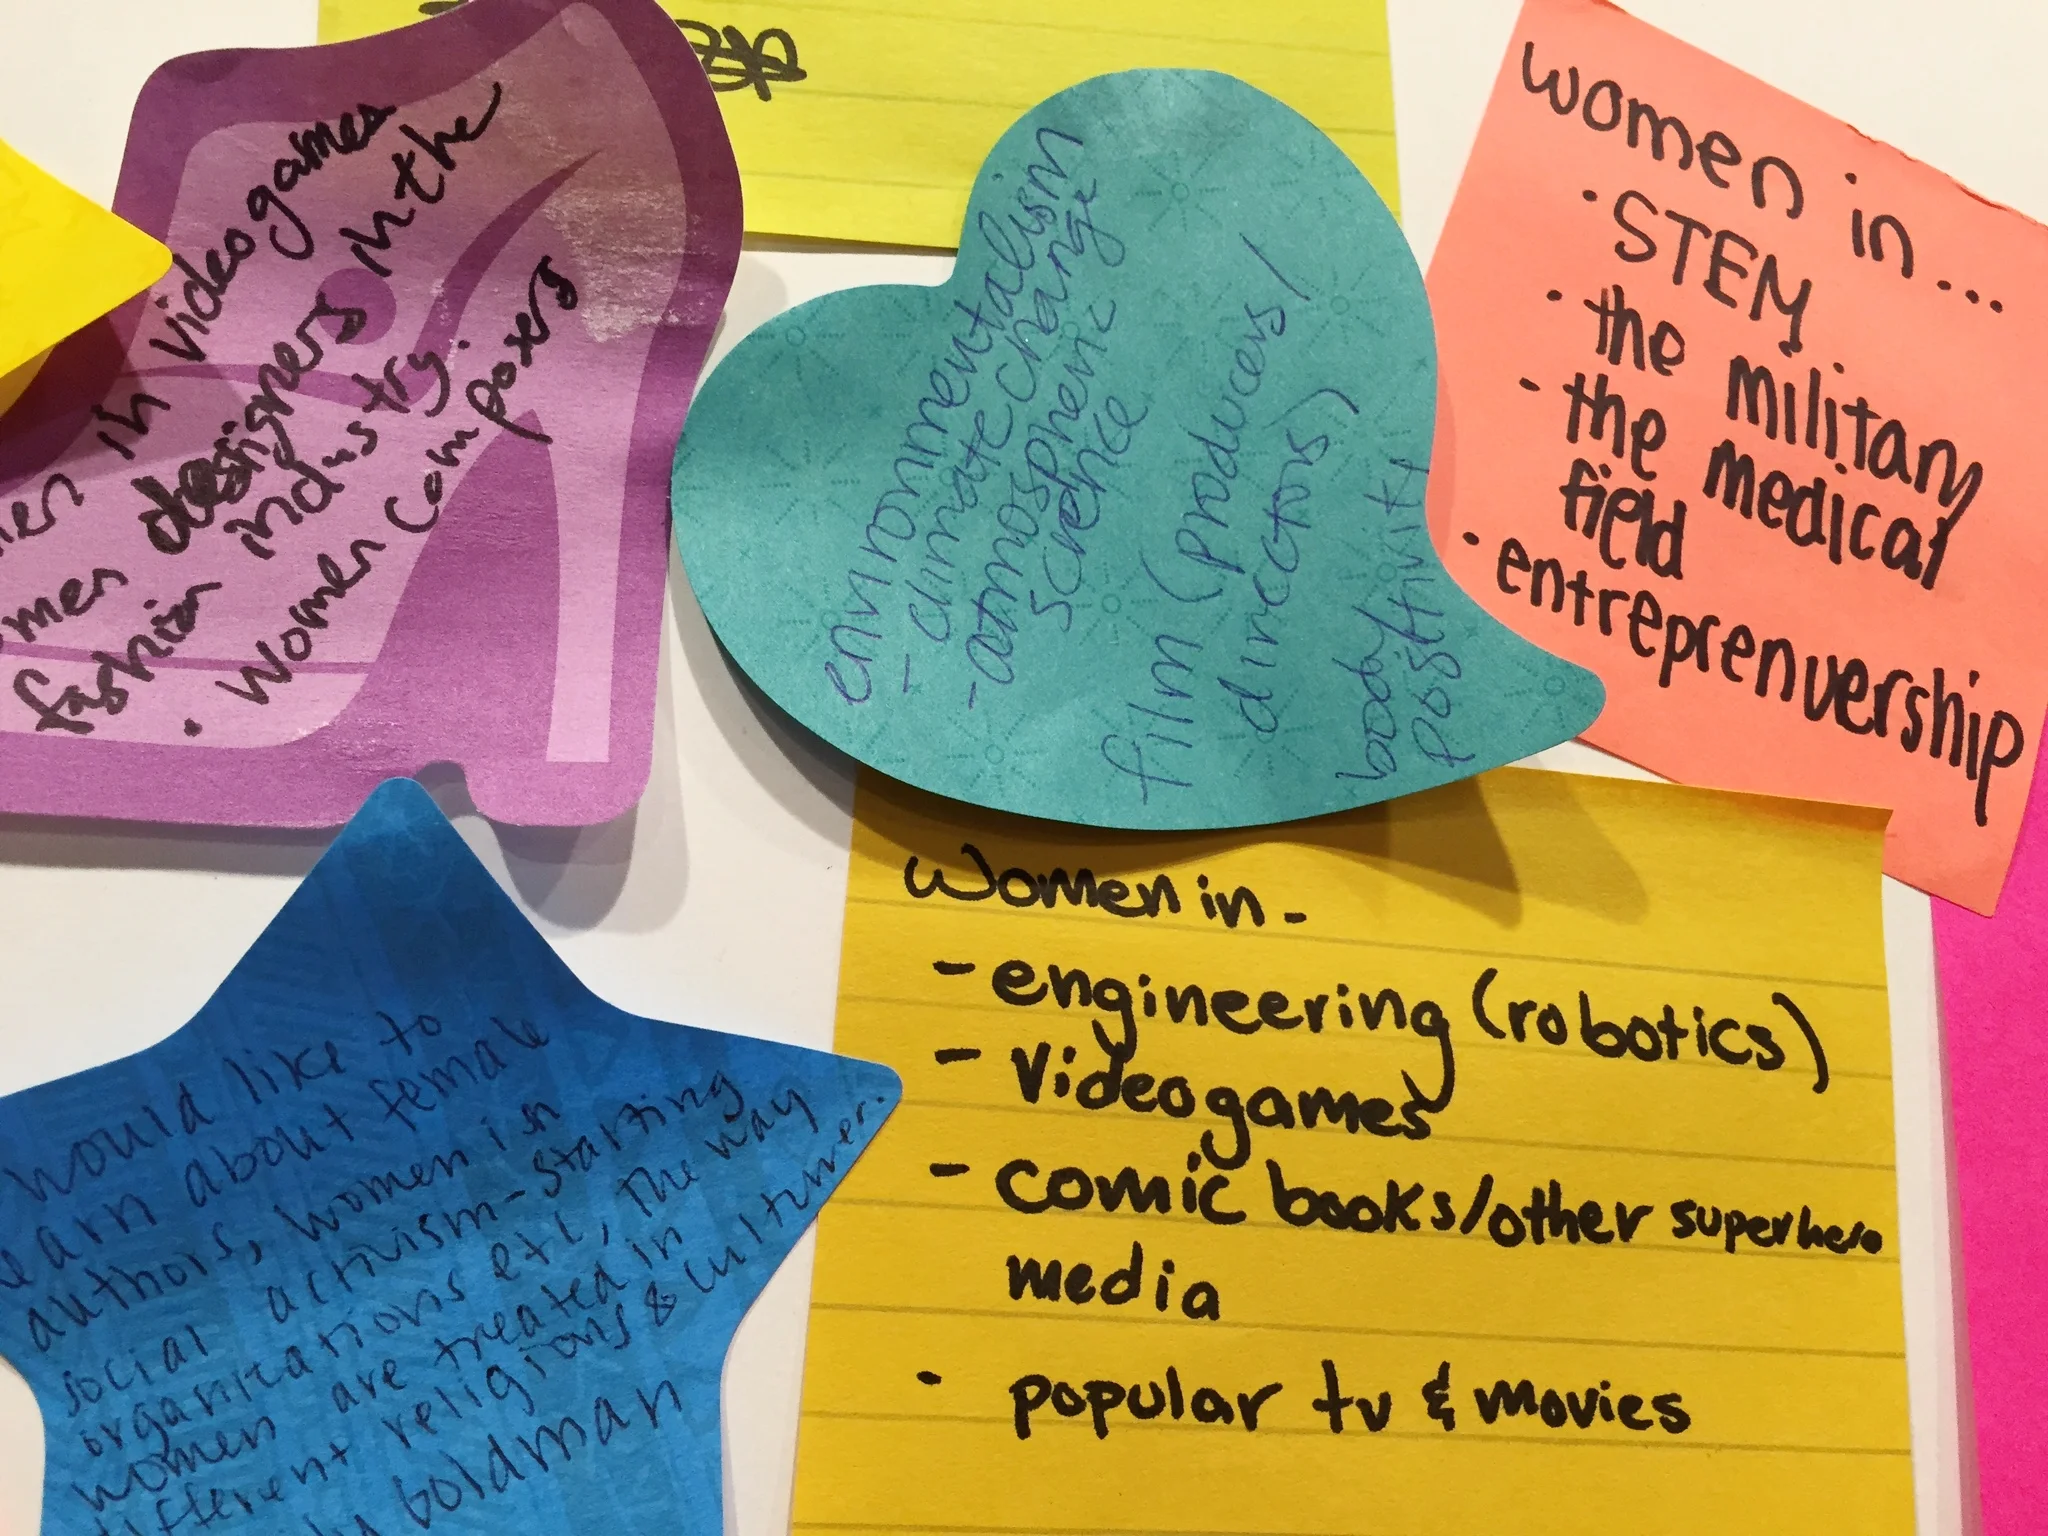 in videogames
designers in the
fashion industry.
• women composers
environmentalism
- climate change
- atmospheric
science
film (producers/
directors)
body
positivity
women in...
• STEM
• the military
• the medical
field
• entreprenuership
would like to
learn about female
authors, women in
social activism - starting
organizations etc, the way
women are treated in
different religions & cultures.
goldman
Women in -
- engineering (robotics)
- Videogames
- comic books/other superhero
media
- popular tv & movies